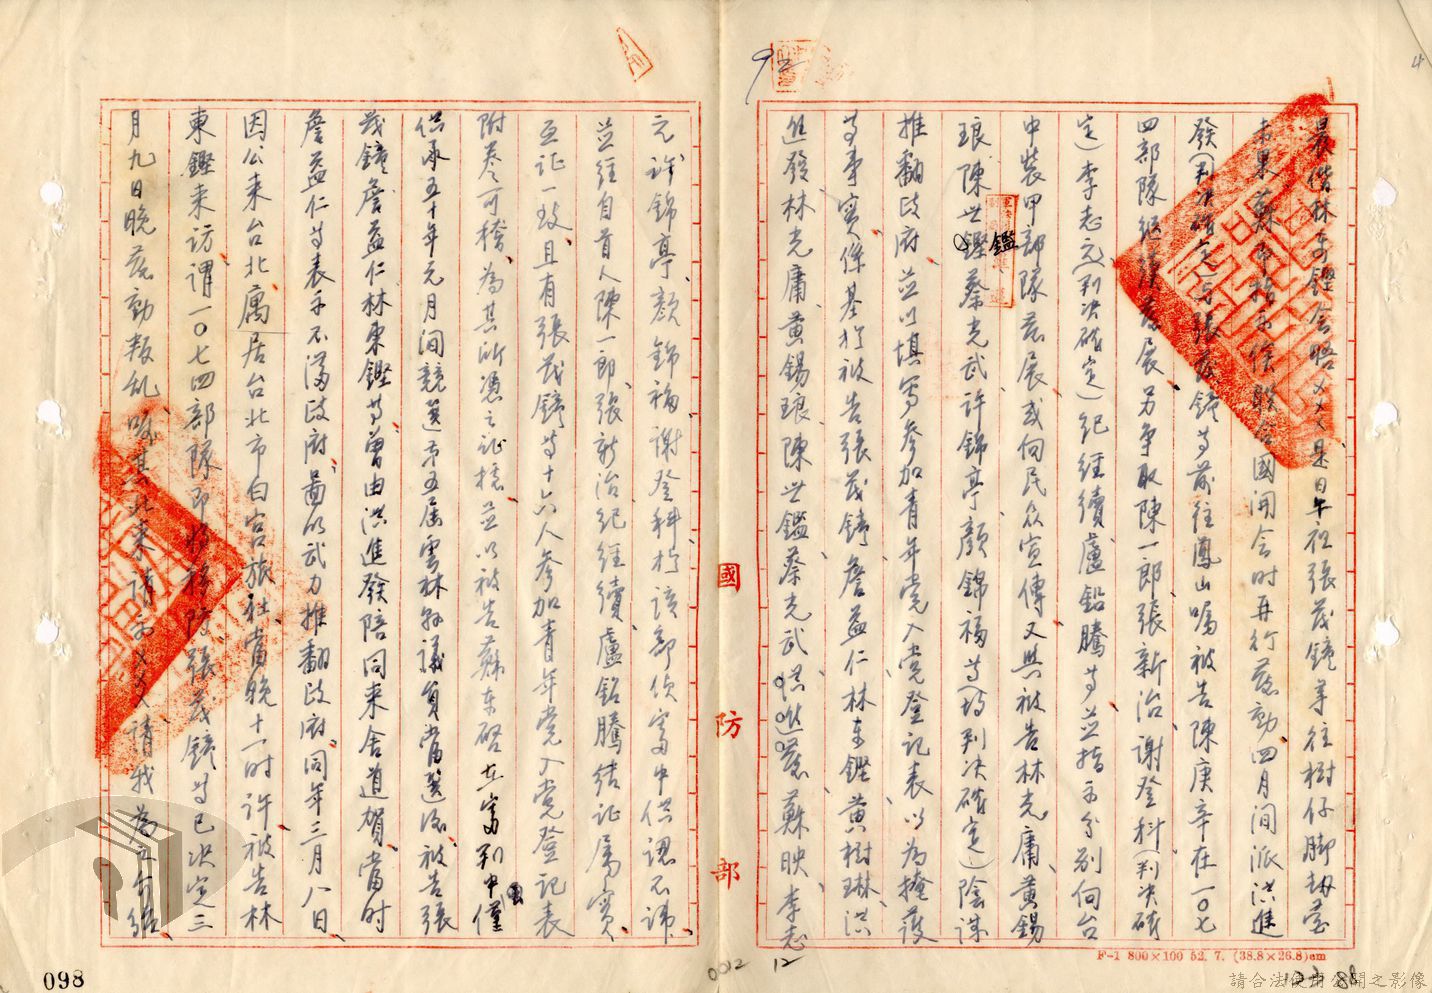 晨偕林東鏗會晤×××是日午礼張茂鐘等往樹仔脚劫营
未果蘇即指示俟联合國開会时再行蓎動四月间派洪進
發(判决確定)与張茂鐘等前往鳳山嘱被告陳庚辛在一〇七
四部隊继續蓎展另争取陳一郎張新治、謝登科(判决確
定)李志元(判决確定)纪经續盧鉛騰等並指示分别向台
中裝甲部隊蓎展或向民众宣傳又與被告林光庸、黄錫
琅、陳世鏗鑑、蔡光武、許錦亭、顏錦福等(均判决確定)陰謀
推翻政府並以填写参加青年党入党登記表以為掩護
等事实係基於被告張茂鐘、詹益仁、林東鏗、黄樹琳、洪
進發、林光庸、黄錫琅、陳世鑑、蔡光武、洪進蓎、蘇映、李志
元、許錦亭、顏錦福、謝登科於該部偵審中供認不諱
並经自首人陳一郎、張新治、纪经續、盧鉛騰结证屬實、
互证一致且有張茂鐘等十六人参加青年党入党登記表
附卷可稽、為其所憑之证據、並以被告蘇東啓在审判中僅
供承五十年元月间競選第五届雲林縣議員當選後、被告張
茂鐘、詹益仁、林東鏗等曾由洪進發陪同来舍道賀當时
詹益仁等表示不滿政府、圖以武力推翻政府、同年三月八日
因公来台北寓居台北市白宫旅社當晚十一时許被告林
東鏗来访謂一〇七四部隊即將移防、張茂鐘等已决定三
月九日晚蓎動叛乱、嘱其北来請示×××請我為
國防部
F-1 800×100 52. 7. (38.8×26.8)cm
098
0012
12
請合法使用公開之影像